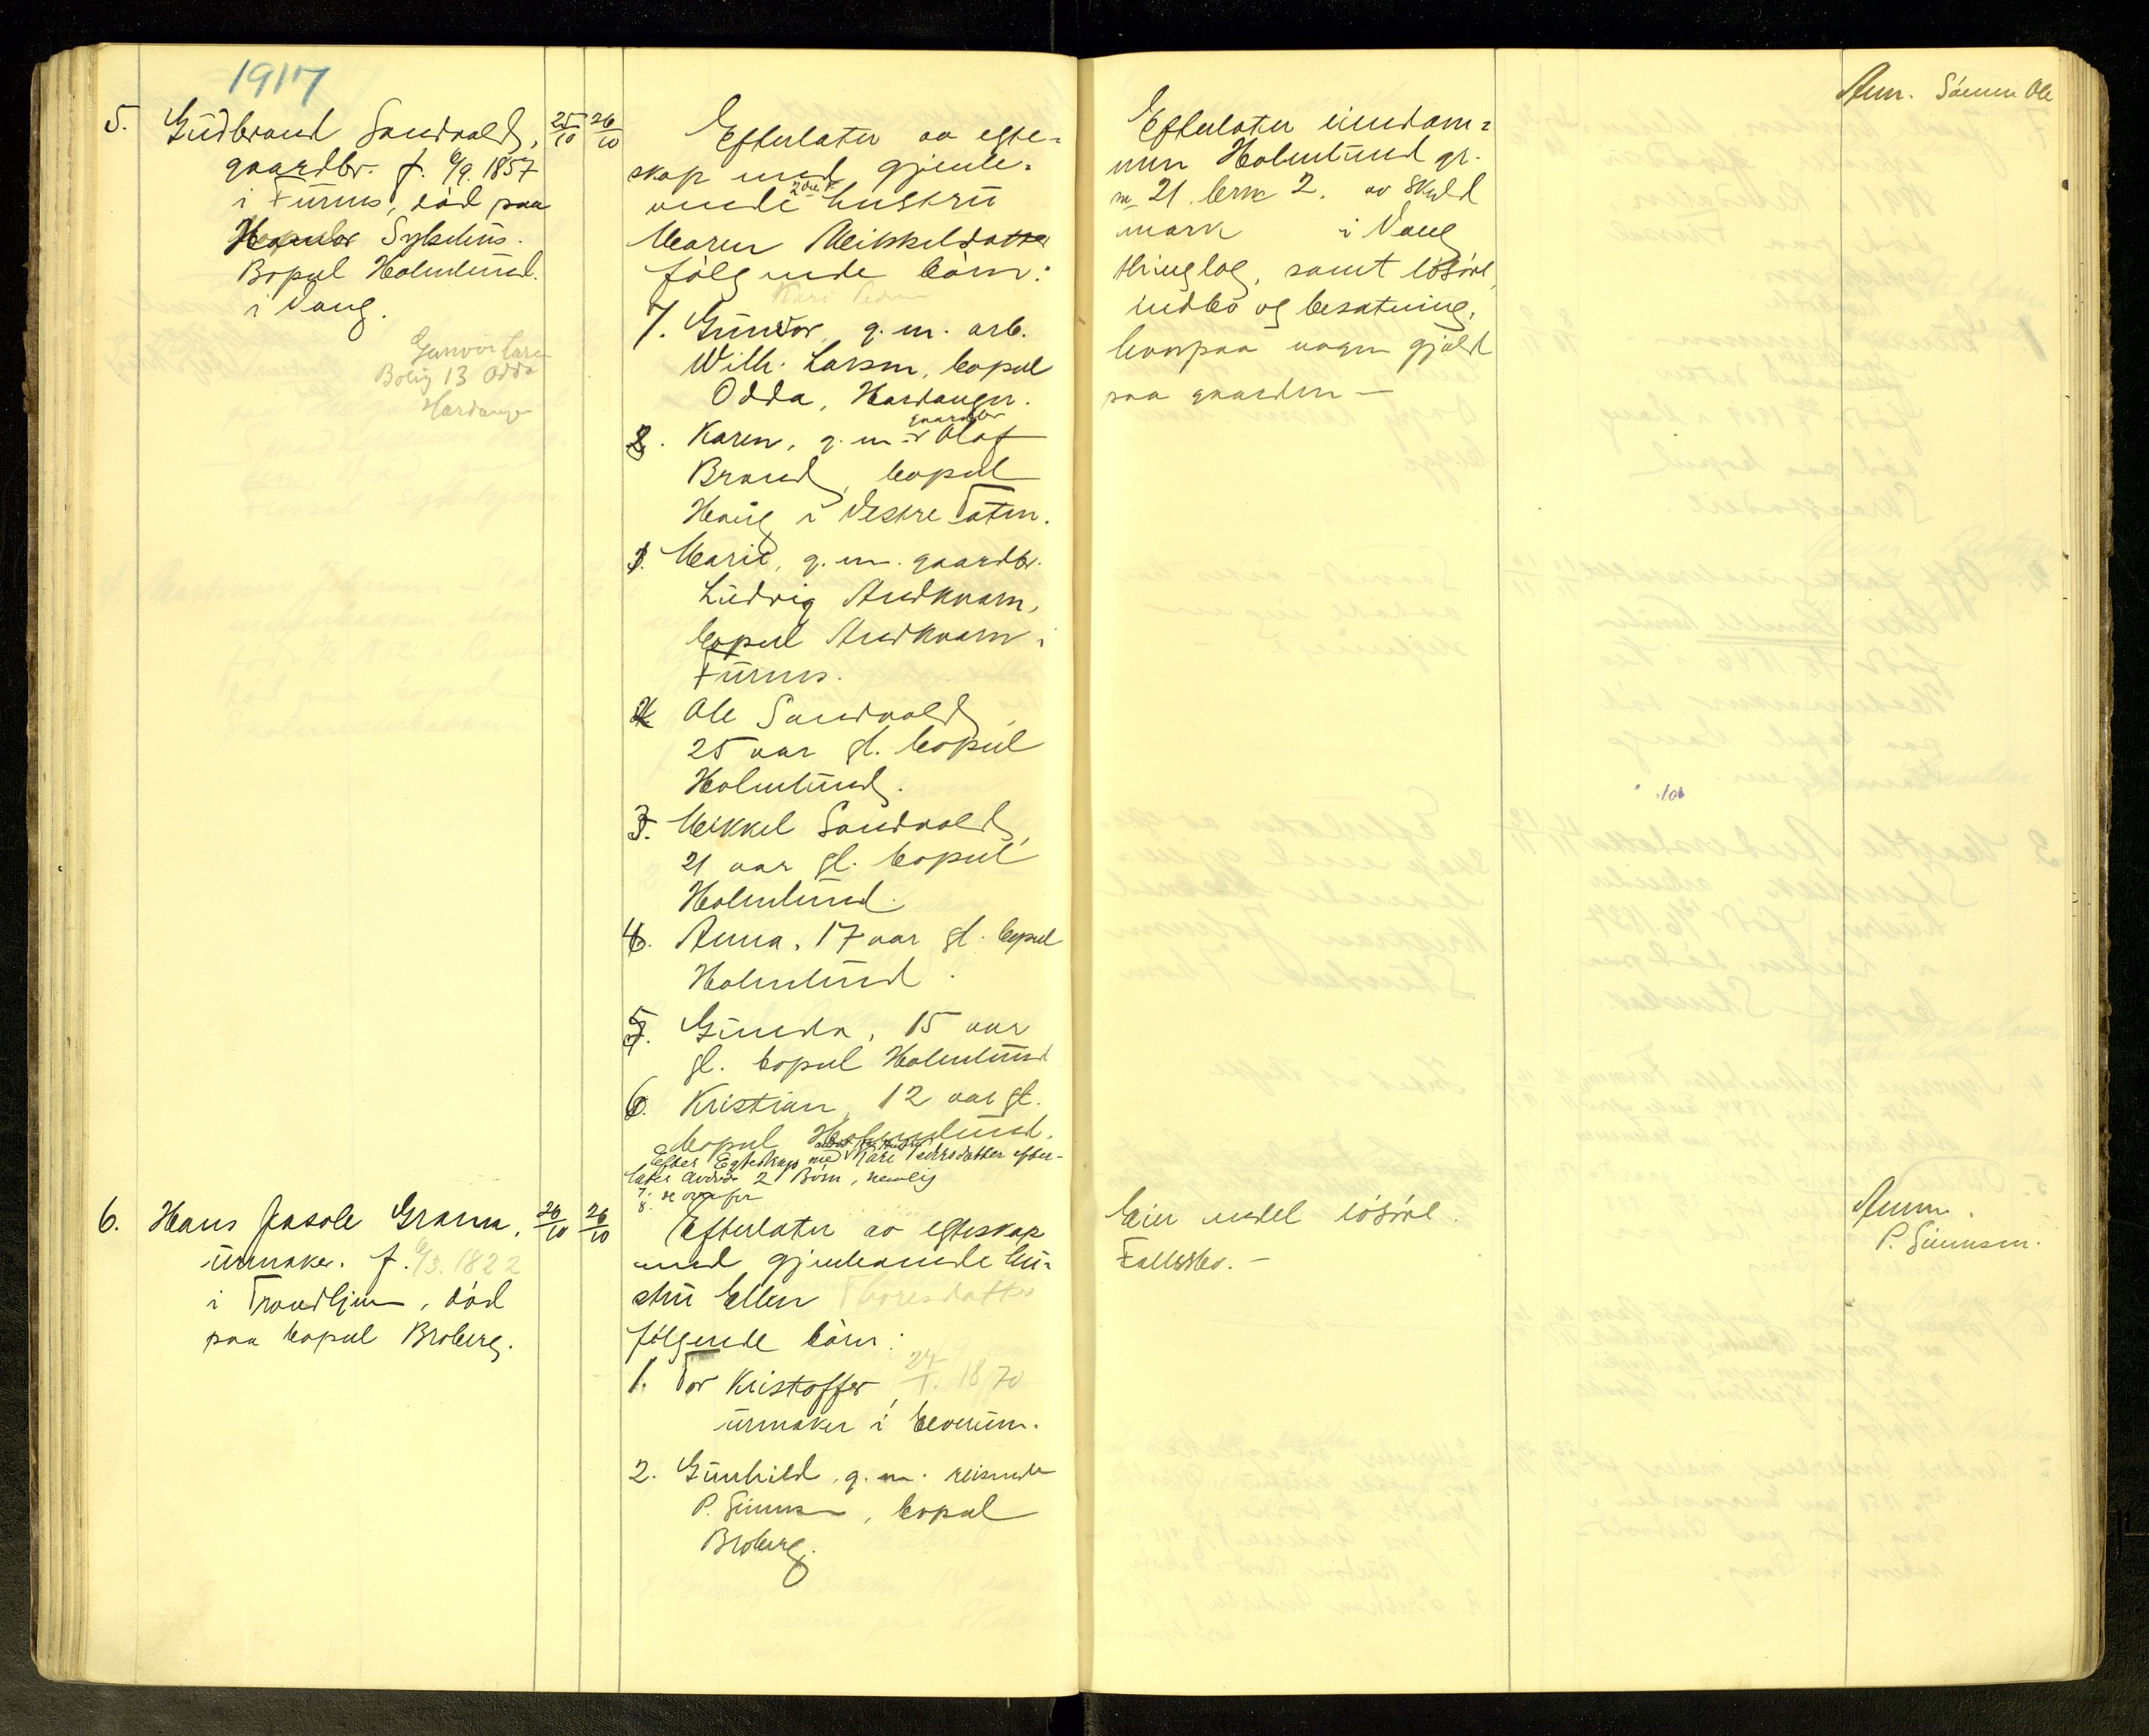 1917
5. Gudbrand Sandvold, 25/10 26/10
gaardbr. f. 6/9. 1857
i Furnes, død paa
Hamar Sykehus.
Bopæl Holmlund.
i Vang.
Gunvor Larsen
Bolig 13 Odda
Hardanger
Efterlater av egte-
skap med gjenle-
vende 2den hustru
Maren Mikkelsdatter
følgende børn:
Kari Peders
7. Gunvor, g. m. arb.
Wilh. Larsen, bopæl
Odda, Hardanger.
8. Karen, g. m. gaardbr Olaf
Brand, bopæl
Haug i Vestre Toten.
1. Marie, g. m. gaardbr.
Ludvig Andkvarn,
bopæl Andkvarn i
Furnes.
2. Ole Sandvold,
25 aar gl. bopæl
Holmlund.
3. Mikkel Sandvold,
21 aar gl. bopæl
Holmlund.
4. Anna, 17 aar gl. bopæl
Holmlund.
5. Gunda, 15 aar
gl. bopæl Holmlund
6. Kristian, 12 aar gl.
bopæl Holmlund.
Efter Egteskap med Kari Pedersdatter efter-
later avdøde 2 Børn, nemlig
7. de ovenfor
8.
6. Hans Grann, 26/10 26/10
urmaker. f. 6/3. 1822
i Trondhjem, død
paa bopæl Broberg.
Efterlater av egteskap
med gjenlevende hu-
stru Ellen Thoresdatter
følgende børn:
1. Tor Kristoffer 24/1. 1870
urmaker i Elverum.
2. Gunhild, g. m. reisende
P. Simensen, bopæl
Broberg.
Efterlater eiendom-
men Holmlund gr.
nr. 21 brnr 2. av skyld
mark i Vang
thinglag, samt løsøre,
indbo og besætning,
hvorpaa nogen gjæld
paa gaarden —
Eier endel løsøre.
Fællesbo. —
Anm. Sønnen Ole
Anm.
P. Simensen.